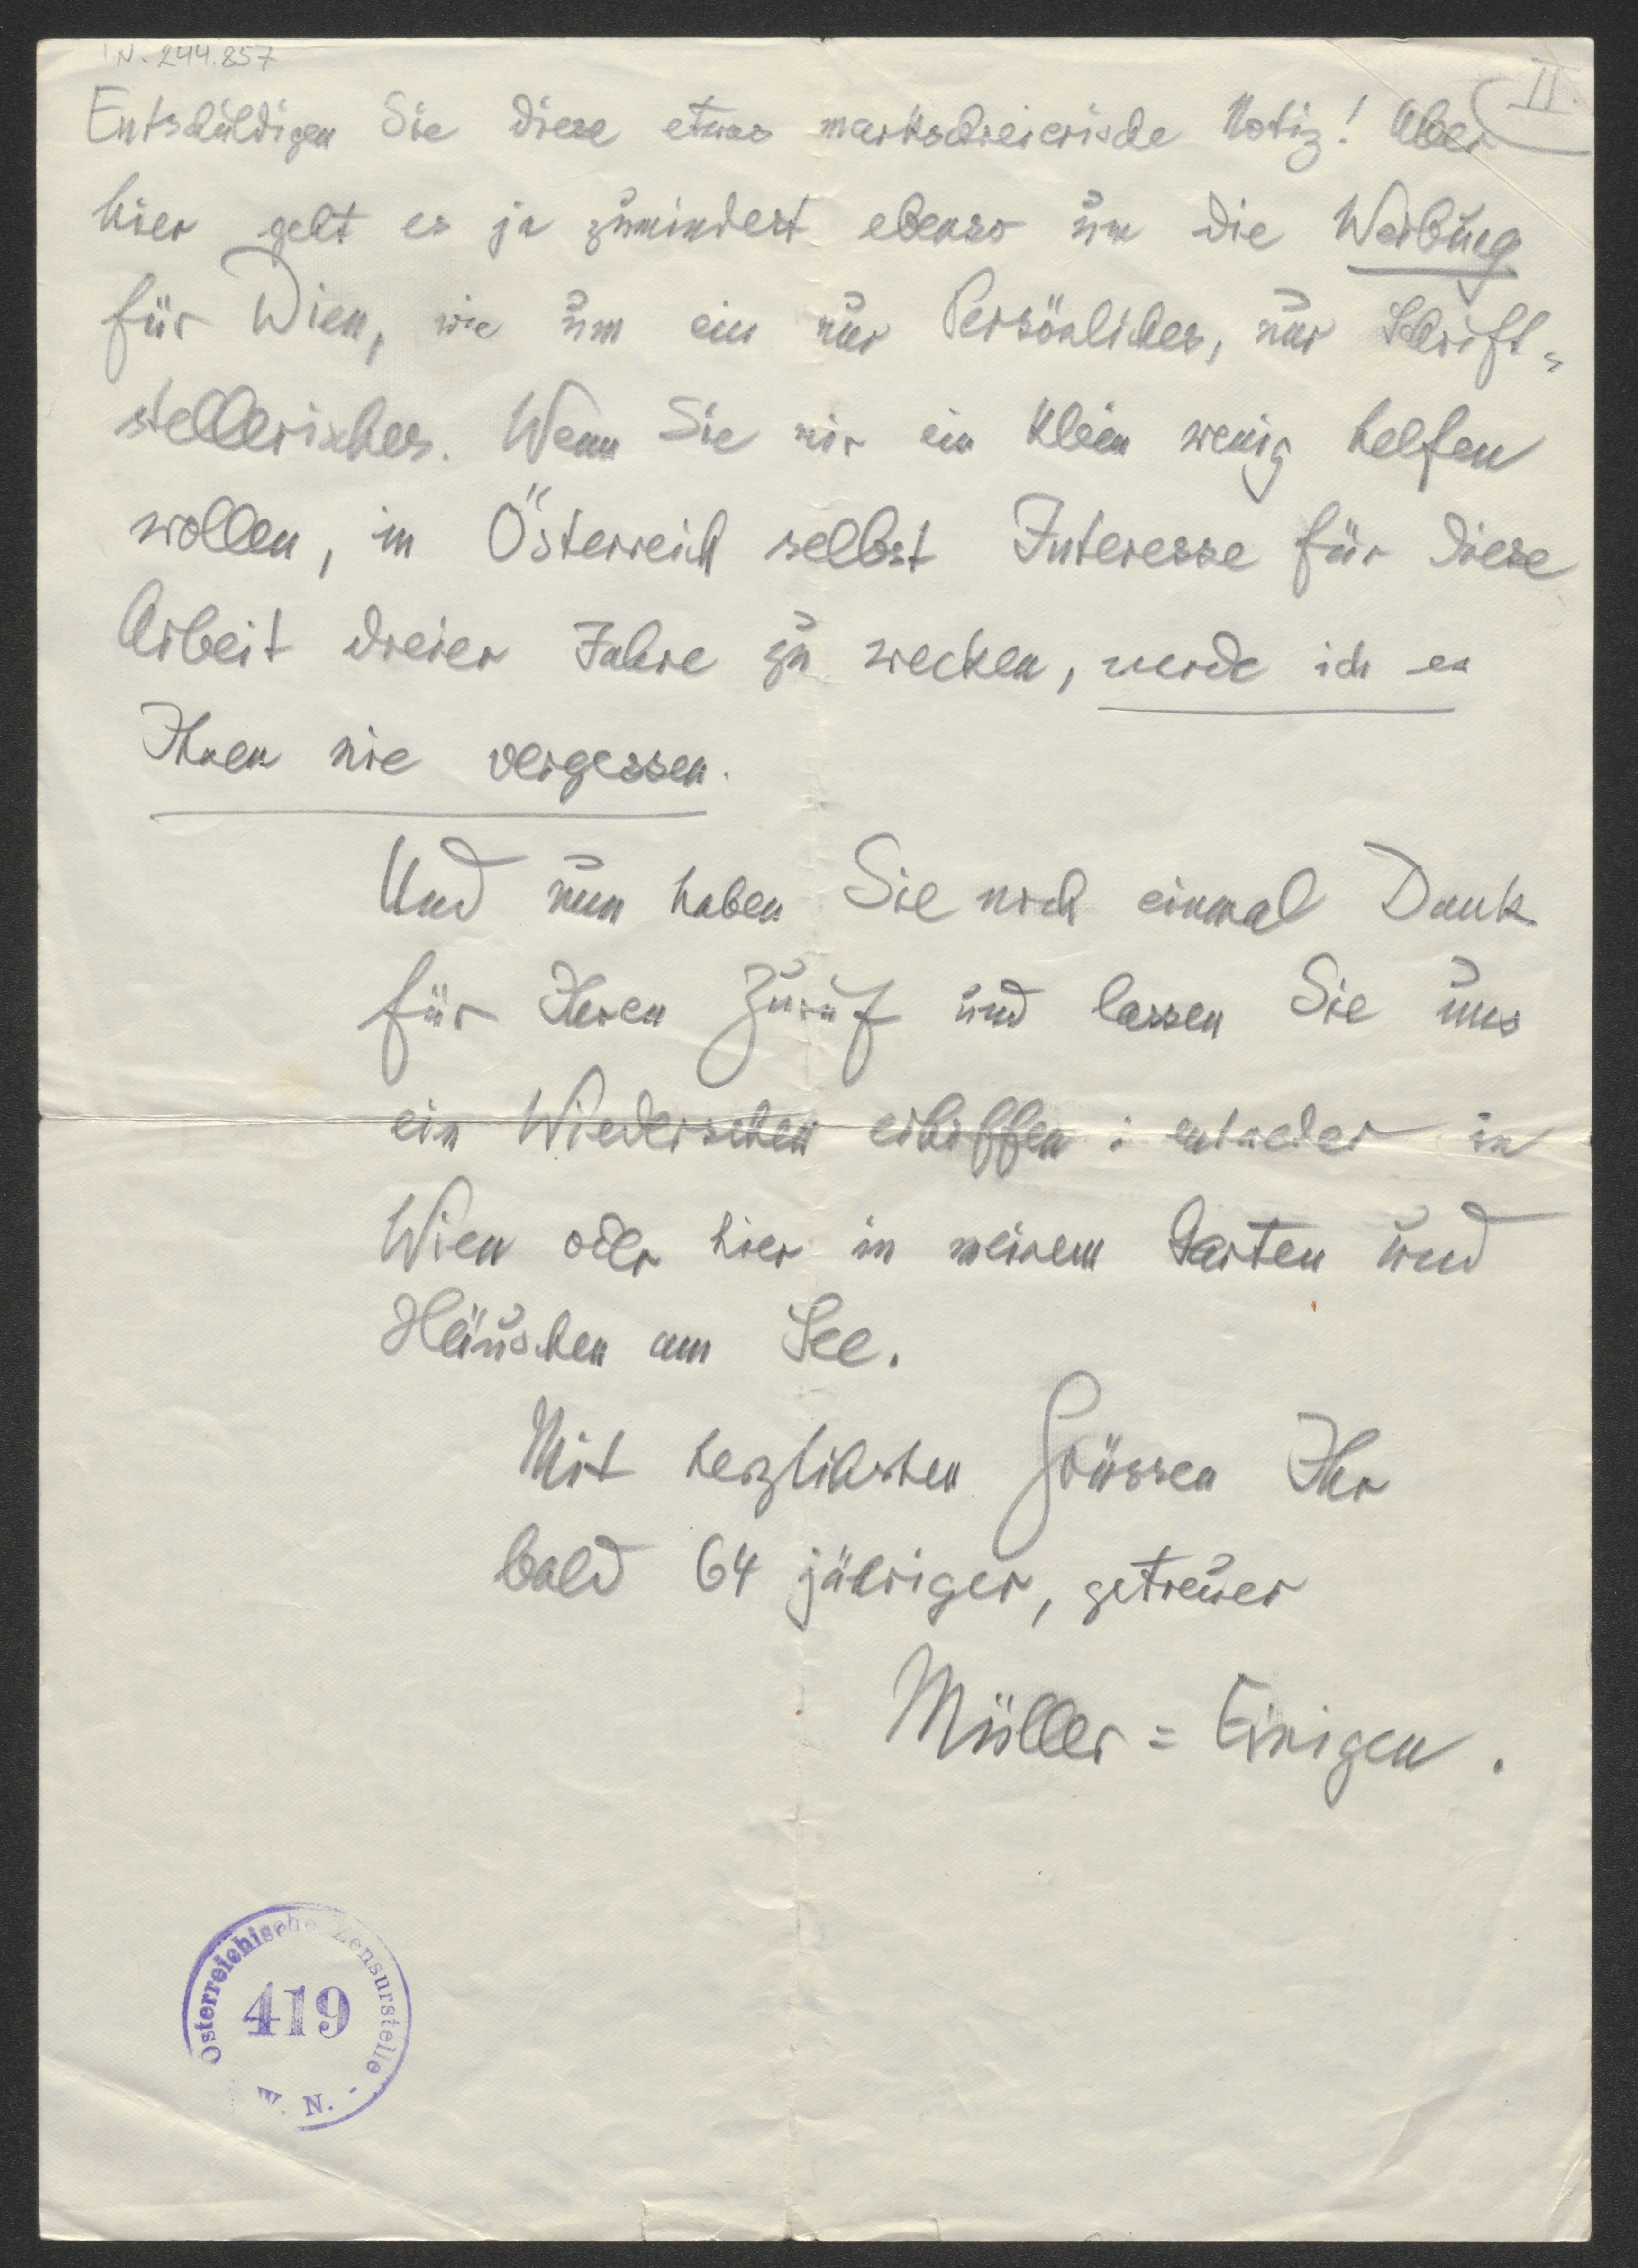 N. 244.857
II.
Entschuldigen Sie diese etwas marktschreierische Notiz! Aber
hier geht es ja zumindest ebenso um die Werbung
für Wien, wie um ein nur Persönliches, nur Schrift=
stellerisches. Wenn Sie mir ein klein wenig helfen
wollen, in Österreich selbst Interesse für diese
Arbeit dreier Jahre zu wecken, werde ich es
Ihnen nie vergessen.
Und nun haben Sie noch einmal Dank
für Ihren Zuruf und lassen Sie uns
ein Wiedersehen erhoffen: entweder in
Wien oder hier in meinem Garten und
Häuschen am See.
Mit herzlichsten Grüssen Ihr
bald 64 jähriger, getreuer
Müller=Einigen.
Österreichische Zensurstelle
419
W. N.